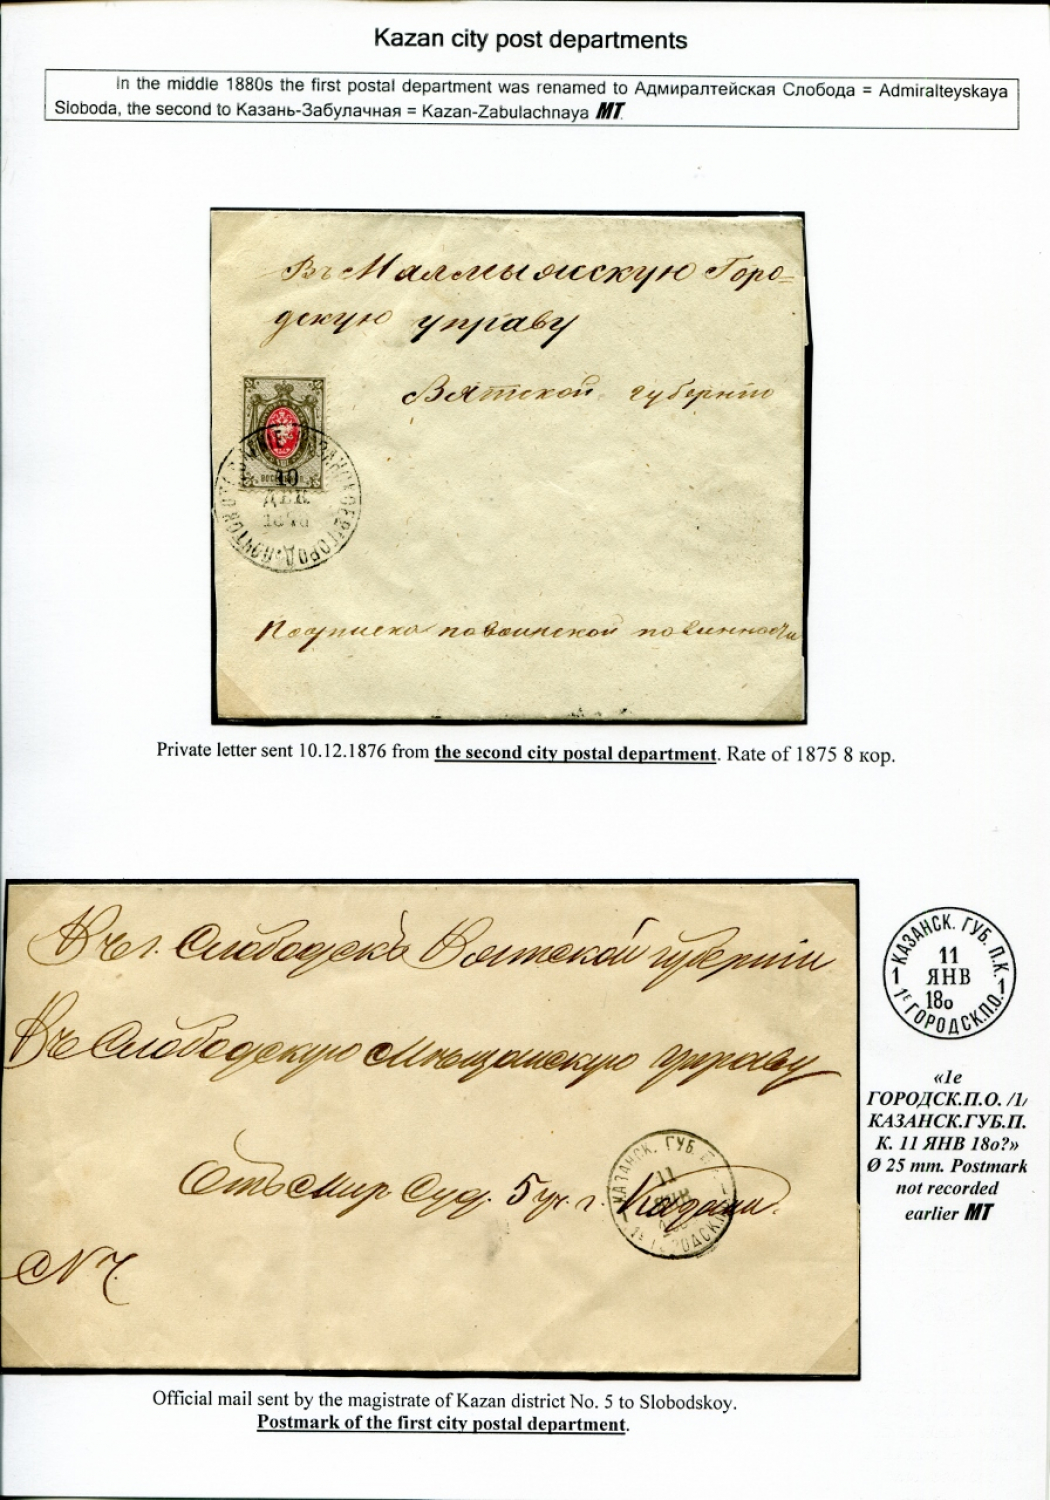 Kazan city post departments
In the middle 1880s the first postal department was renamed to Адмиралтейская Слобода = Admiralteyskaya
Sloboda, the second to Казань-Забулачная = Kazan-Zabulachnaya МТ.
Въ Малмыжскую Горо=
дскую управу
Вятской губерніи
10
ДЕК
1876
ГОРОД. ПОЧТОВ
Подписка по воинской повинности
Private letter sent 10.12.1876 from the second city postal department. Rate of 1875 8 коp.
Въ г. Слободскъ Вятской губерніи
Въ Слободскую Мѣщанскую управу
Отъ Мир. Суд. 5 уч. г. Казани.
КАЗАНСК. ГУБ. П.
11
ЯНВ
1е ГОРОДСК.
КАЗАНСК. ГУБ. П.К.
11
ЯНВ
18о
1 1
1Е ГОРОДСК.П.О.
«1е
ГОРОДСК.П.О. /1/
КАЗАНСК.ГУБ.П.
К. 11 ЯНВ 18о?»
Ø 25 mm. Postmark
not recorded
earlier МТ
Official mail sent by the magistrate of Kazan district No. 5 to Slobodskoy.
Postmark of the first city postal department.